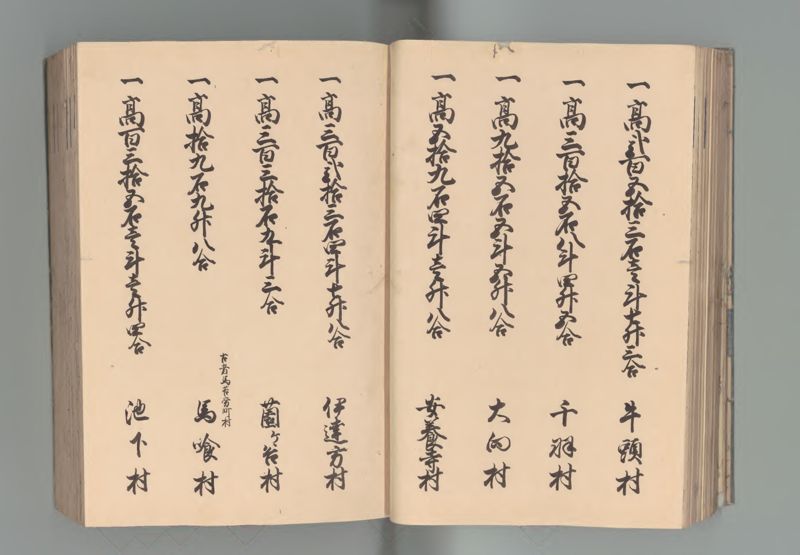 一高弐百五拾三石壱斗七升三合　牛頭村
一高三百拾五石八斗四升五合　千羽村
一高九拾五石五斗五升八合　大向村
一高五拾九石四斗壱升八合　安養寺村
一高三百弐拾三石四斗七升八合　伊達方村
一高三百三拾石九斗三合　薗ケ谷村
古者馬
一高拾九石九升八合　馬喰村
一高百三拾五石壱斗壱升四合　池下村